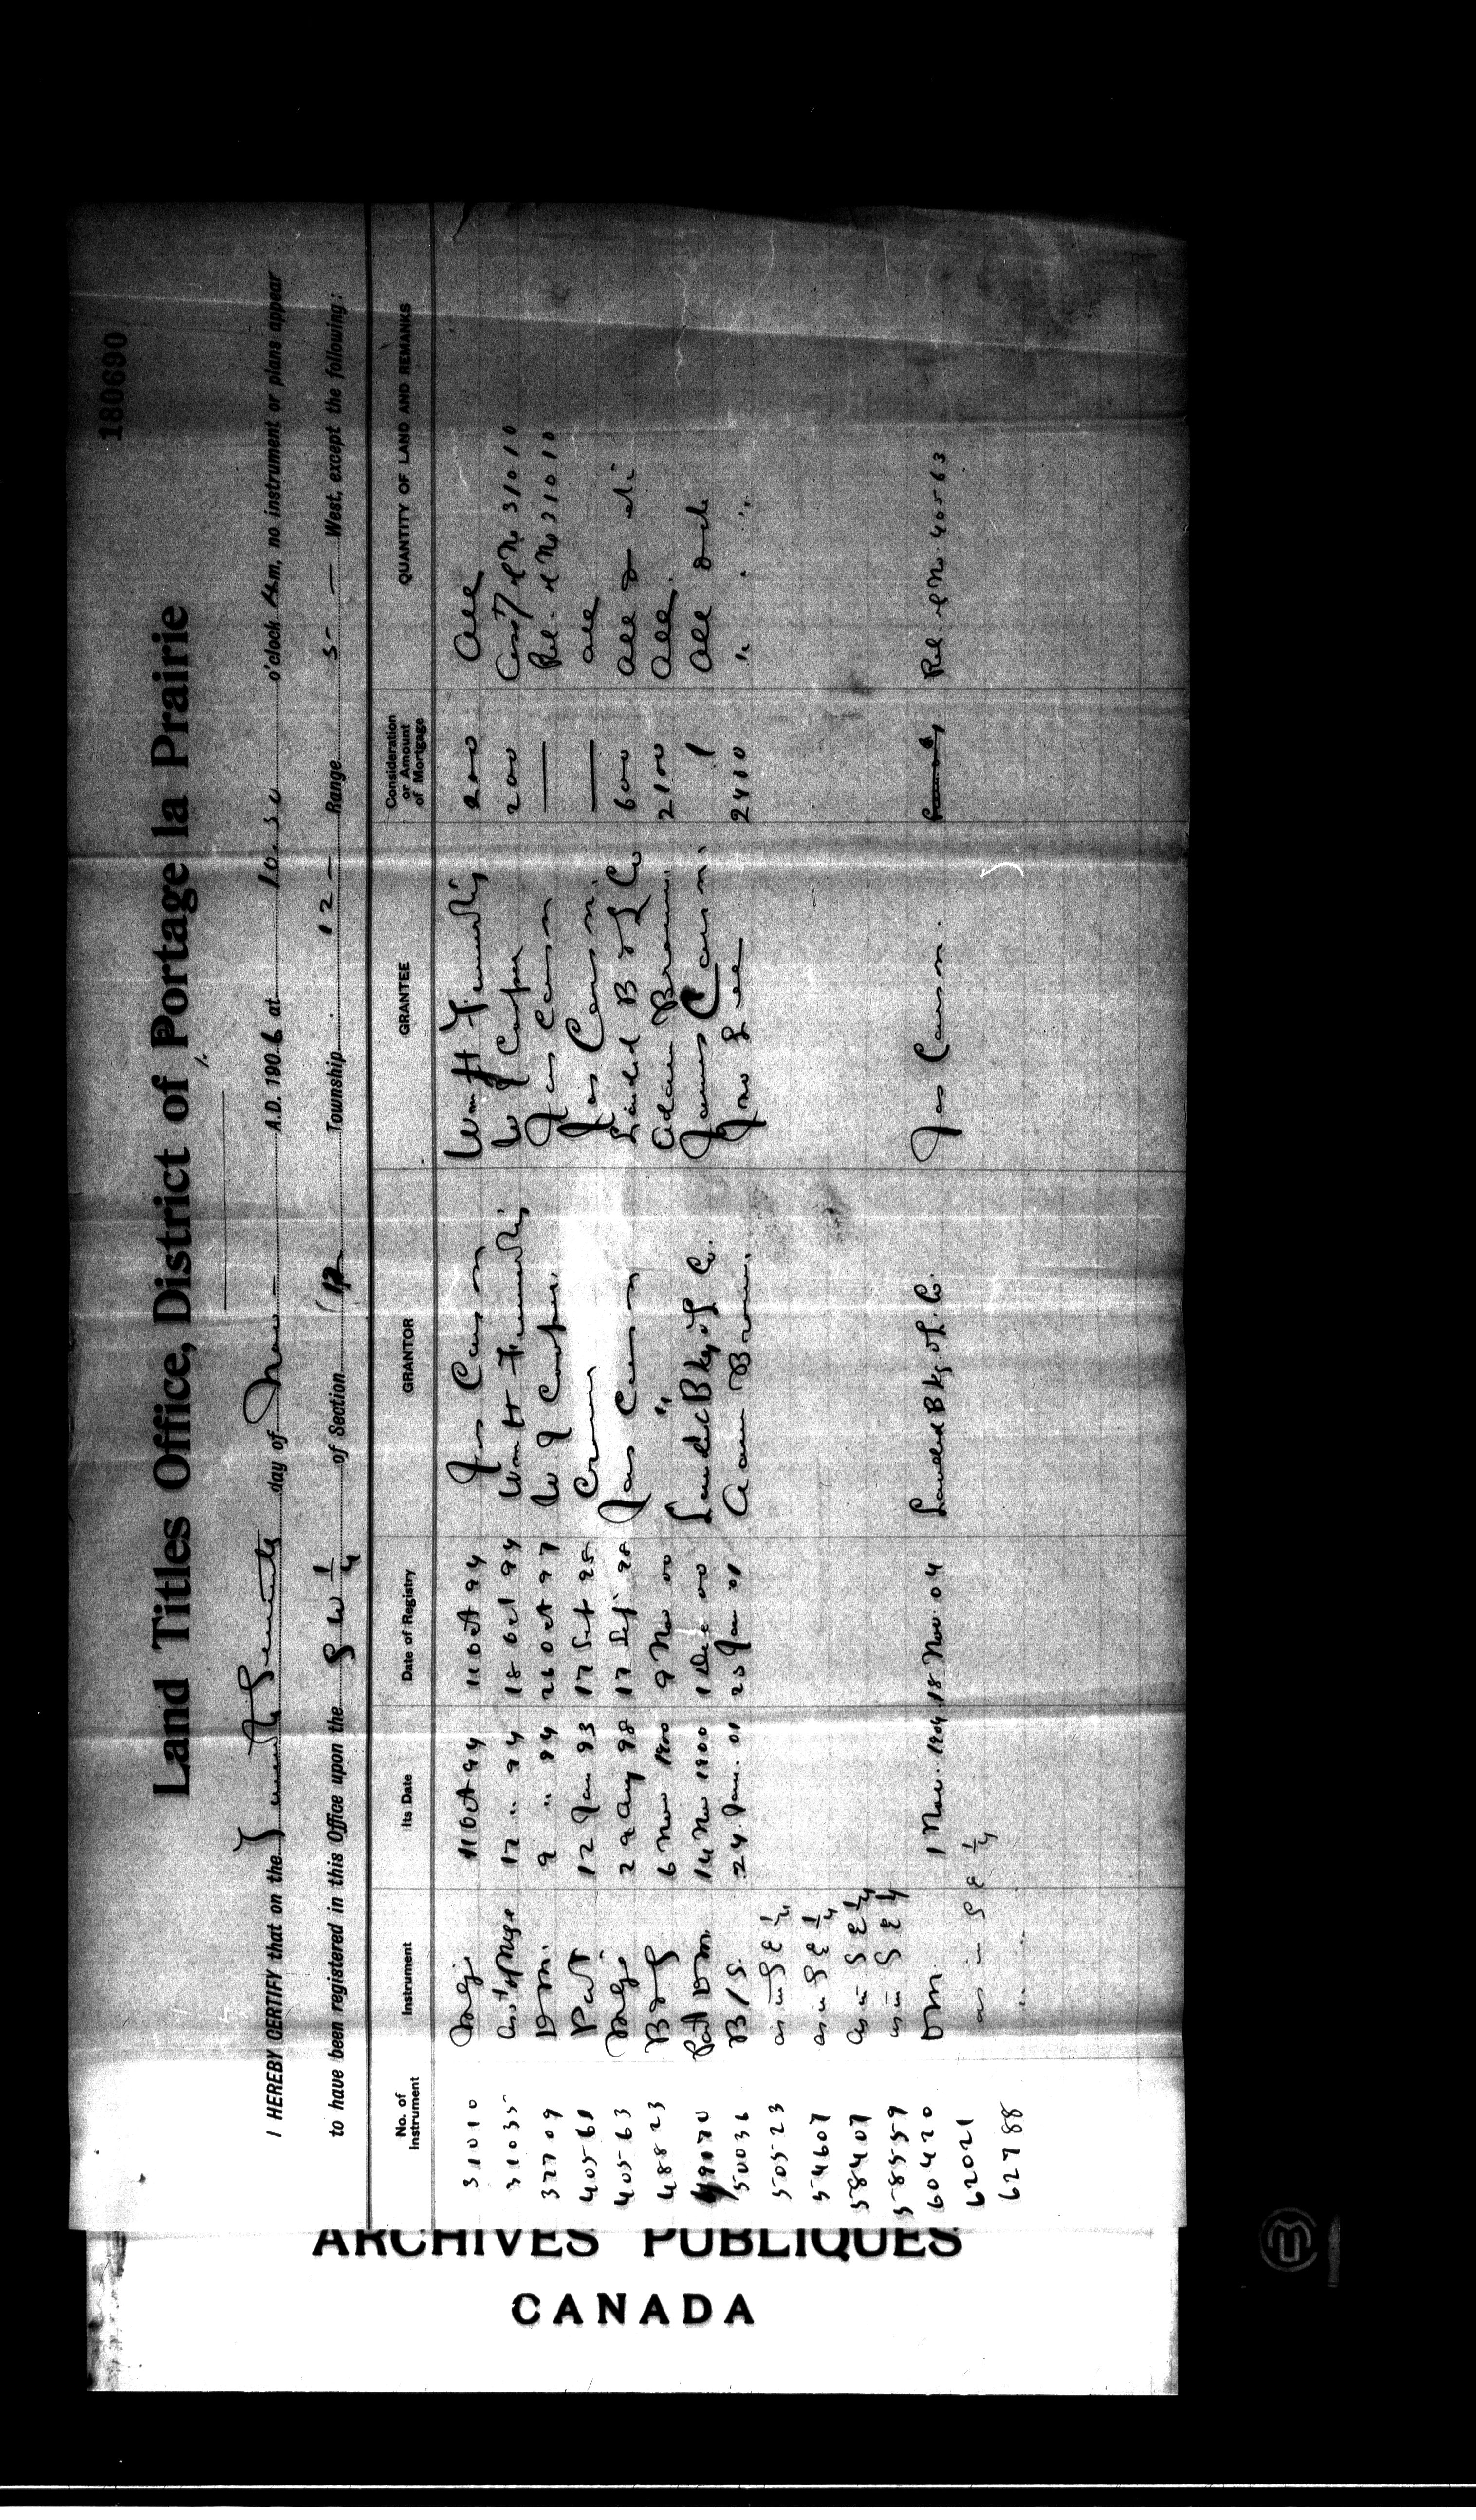 180690
Land Titles Office, District of Portage la Prairie
I HEREBY CERTIFY that on the Twenty Seventh day of A.D. 1906 at 10.30 o'clock Am, no instrument or plans appear
to have been registered in this Office upon the S W 1/4 of Section 12 Township 12 — Range 5 — West, except the following:
No. of Instrument Instrument Its Date Date of Registry GRANTOR GRANTEE Consideration or Amount of Mortgage QUANTITY OF LAND AND REMARKS
31010 Mtge 11 Oct 94 11 Oct 94 Jas Carson Wm H 200 All
31035 Asst of Mtge 17 " 94 18 Oct 94 Wm H W J Cooper 200 of No 31010
37709 DM. 9 " 94 26 Oct 97 W J Cooper Jas Carson — Rel. of No 31010
40561 Pat 12 Jan 93 17 Sept 98 Crown Jas Carson — All
40563 Mtge 29 Aug 98 17 Sept 98 Jas Carson Landed B & L Co 600 All &
48823 B & S 6 Nov 1900 9 Nov 00 " Adam Brown 2100 All
49070 Part DM 14 Nov 1900 1 Dec 00 Landed Bkg & L Co. James Carson 1 All
50036 B/S 24 Jan. 01 Jan 01 Adam Brown Jno Lee 2410 " " "
50523 as in S E 1/4
54607 as in S E 1/4
58407 as in S E 1/4
58559 as in S E 1/4
60420 DM 1 Nov. 1904 18 Nov. 04 Landed Bkg. & L. Co. Jas Carson Rel. of No. 40563
62021 as in S E 1/4
62788 " "
ARCHIVES PUBLIQUES
CANADA